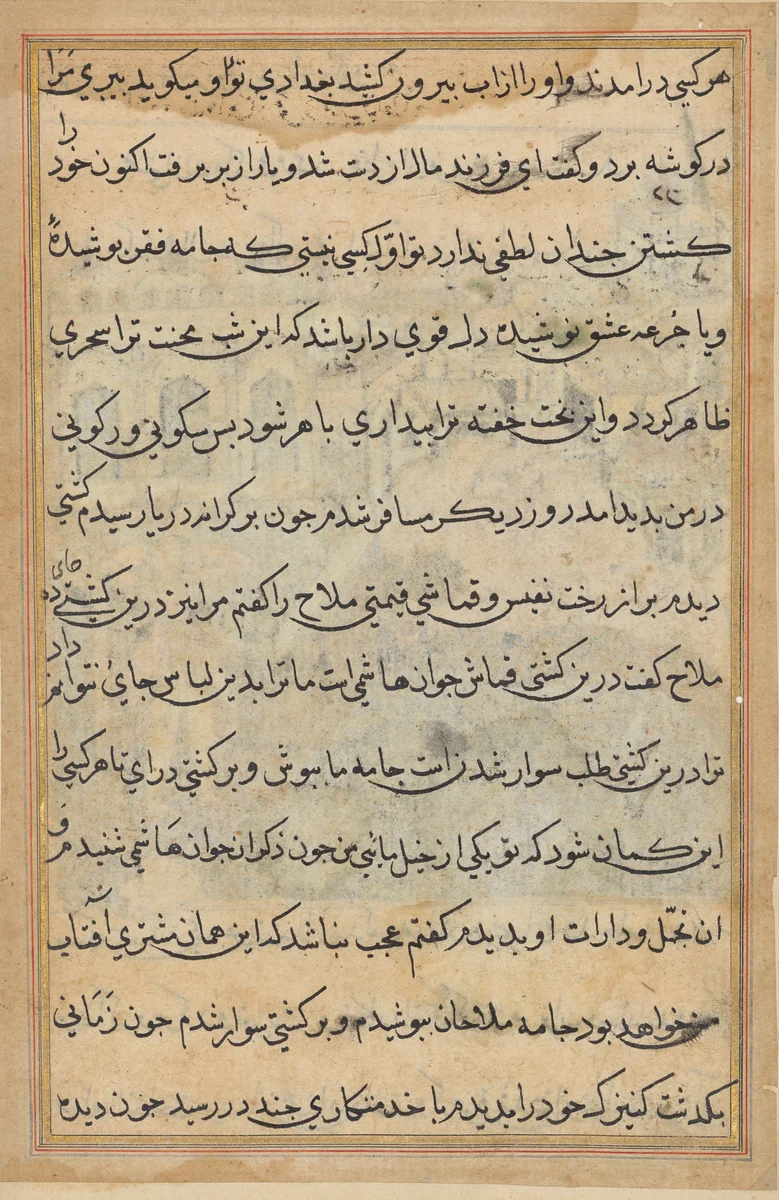 هر کسی درامدند واورا ازاب بیرون کشید بغدادي تواو میکوید بیري مرَا
درکوشه برد وکفت اي فرزند مال ازدست شد ویار از بر برفت اکنون خود را
کشتن جندان لطفی ندارد تواوّل کسی نیستی که جامه فقر بوشیدهٔ
ویا جُرعه عشق نوشیده دل قوي دار باشد که این شب محنت ترا سحري
ظاهر کردد واین بخت خفته ترا بیداري باهر شود بس سکونی ورکونی
درمن بدید امد روز دیکر مسافر شدم جون بر کرانه دریا رسیدم کشتی
دیدم بر از رخت نفیس وقماشي قیمتي ملاح را کفتم مرا نیز درین کشتي جاي ده
ملاح کفت درین کشتی قماش جوان هاشمي است ما ترا بدین لباس جائ نتوانم داد
ترا درین کشتي طلب سوار شدن است جامه ما ببوش وبر کشتي دراي تا هر کسي را
این کمان شود که تو یکي از خیل مائی من جون ذکر ان جوان هَاشمي شنیدم وَ
ان تجمّل ودارات او بدیدم کفتم عجب نباشد که این همان مشتري افتاب
من خواهد بود جامه ملاحان ببوشیدم وبر کشتي سوار شدم جون زَمَاني
بکدشت کنیزک خود را بدیدم با خدمتکاري جند در رسید جون دیده